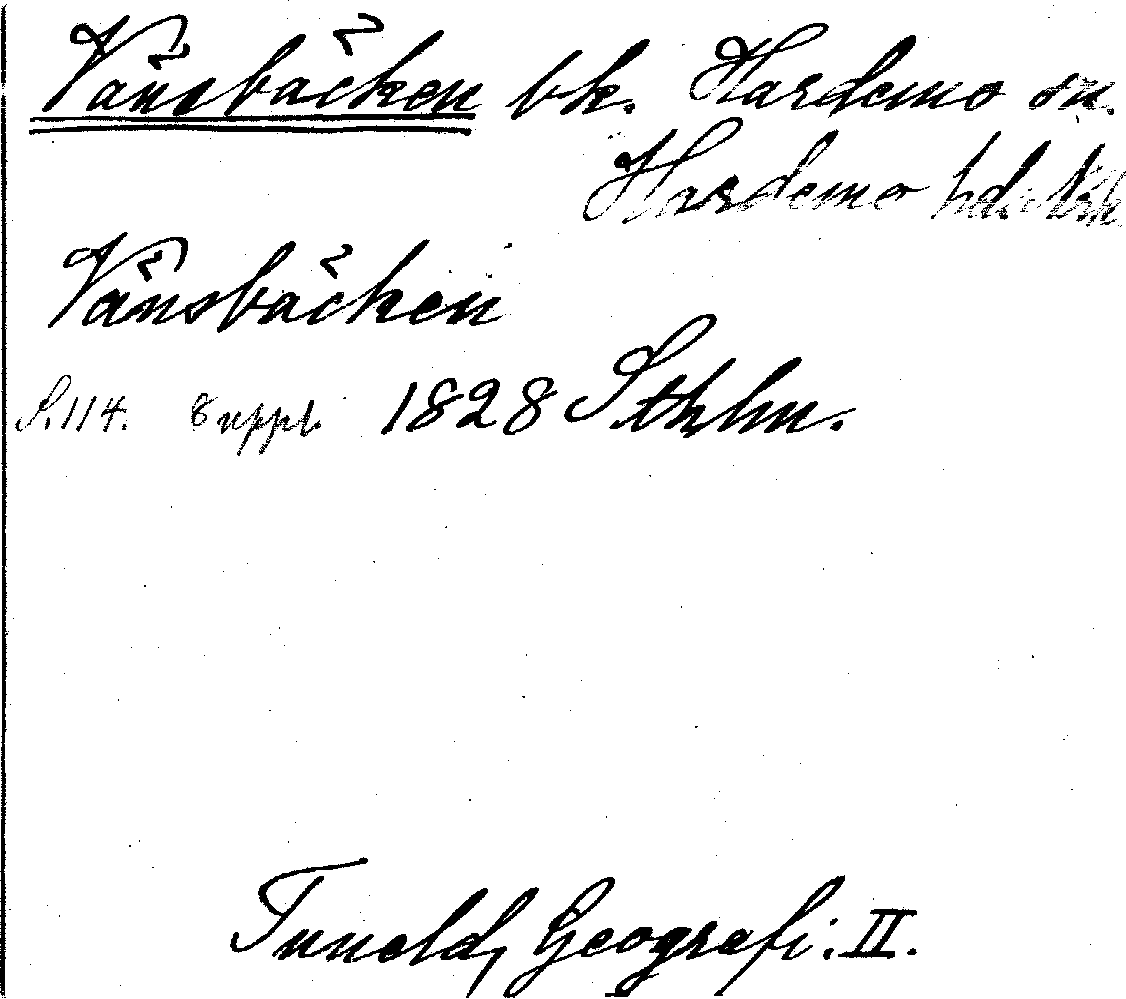 Vänsbäcken bk. Hardemo sn.
Hardemo hd. Nrk
Vänsbäcken
S. 114. 8 uppl. 1828 Sthlm.
Tuneld, Geografi. II.